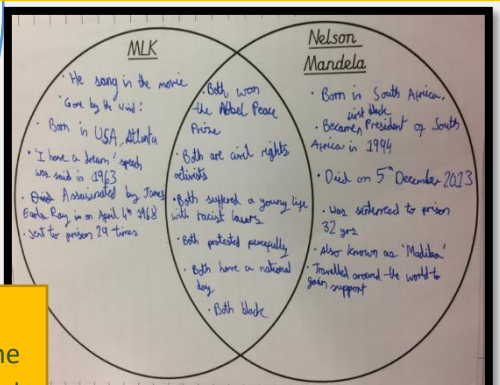 MLK
· He sang in the movie
'Gone by the Wind'.
· Born in USA, Atlanta
· 'I have a dream' speech
was said in 1963
· Assassinated by James
Earls Ray in on April 4th 1968
· Sent to prison 29 times
· Both won
the Nobel Peace
Prize
· Both are civil rights
activists
· Both suffered a young life
with racist laws
· Both protested peacefully
· Both have a national
day
· Both black
Nelson
Mandela
· Born in South Africa.
first black
· Became President of South
Africa in 1994
· Died on 5th December 2013
· Was sentenced to prison
32 yrs
· Also known as 'Madiba'
· Travelled around the world to
gain support